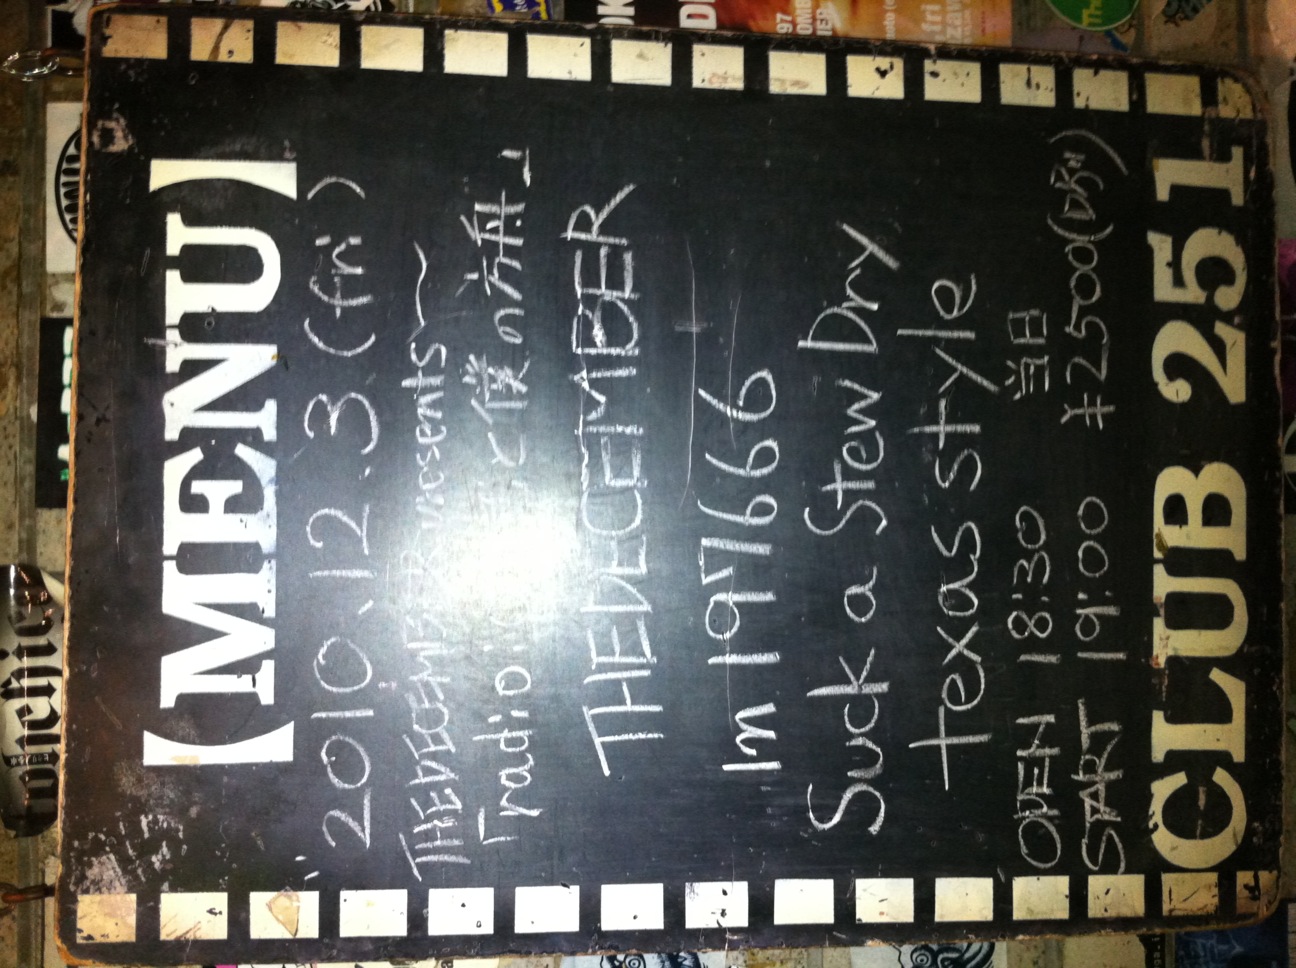 【MENU】
2010.12.3.(fri)
THE DECEMBER presents〜
「radio と僕の
THE DECEMBER
In 197666
Suck a Stew Dry
texas style
OPEN 18:30 当日
START 19:00 ¥2500(DR別)
CLUB 251